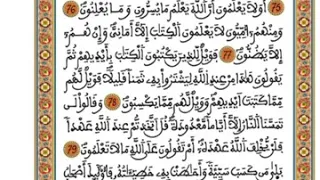 75 أَوَلَا يَعْلَمُونَ أَنَّ اللَّهَ يَعْلَمُ مَا يُسِرُّونَ وَمَا يُعْلِنُونَ 76
وَمِنْهُمْ أُمِّيُّونَ لَا يَعْلَمُونَ الْكِتَٰبَ إِلَّا أَمَانِيَّ وَإِنْ هُمْ
إِلَّا يَظُنُّونَ 77 فَوَيْلٌ لِّلَّذِينَ يَكْتُبُونَ الْكِتَٰبَ بِأَيْدِيهِمْ ثُمَّ
يَقُولُونَ هَٰذَا مِنْ عِندِ اللَّهِ لِيَشْتَرُوا بِهِ ثَمَنًا قَلِيلًا فَوَيْلٌ لَّهُم
مِّمَّا كَتَبَتْ أَيْدِيهِمْ وَوَيْلٌ لَّهُم مِّمَّا يَكْسِبُونَ 78 وَقَالُوا لَن
تَمَسَّنَا النَّارُ إِلَّا أَيَّامًا مَّعْدُودَةً قُلَ اَتَّخَذتُّمْ عِندَ اللَّهِ عَهْدًا
فَلَن يُخْلِفَ اللَّهُ عَهْدَهُ أَمْ تَقُولُونَ عَلَى اللَّهِ مَا لَا تَعْلَمُونَ 79
بَلَىٰ مَن كَسَبَ سَيِّئَةً وَأَحَٰطَتْ بِهِ خَطِيٓـَٰٔتُهُ فَأُولَٰئِكَ أَصْحَٰبُ